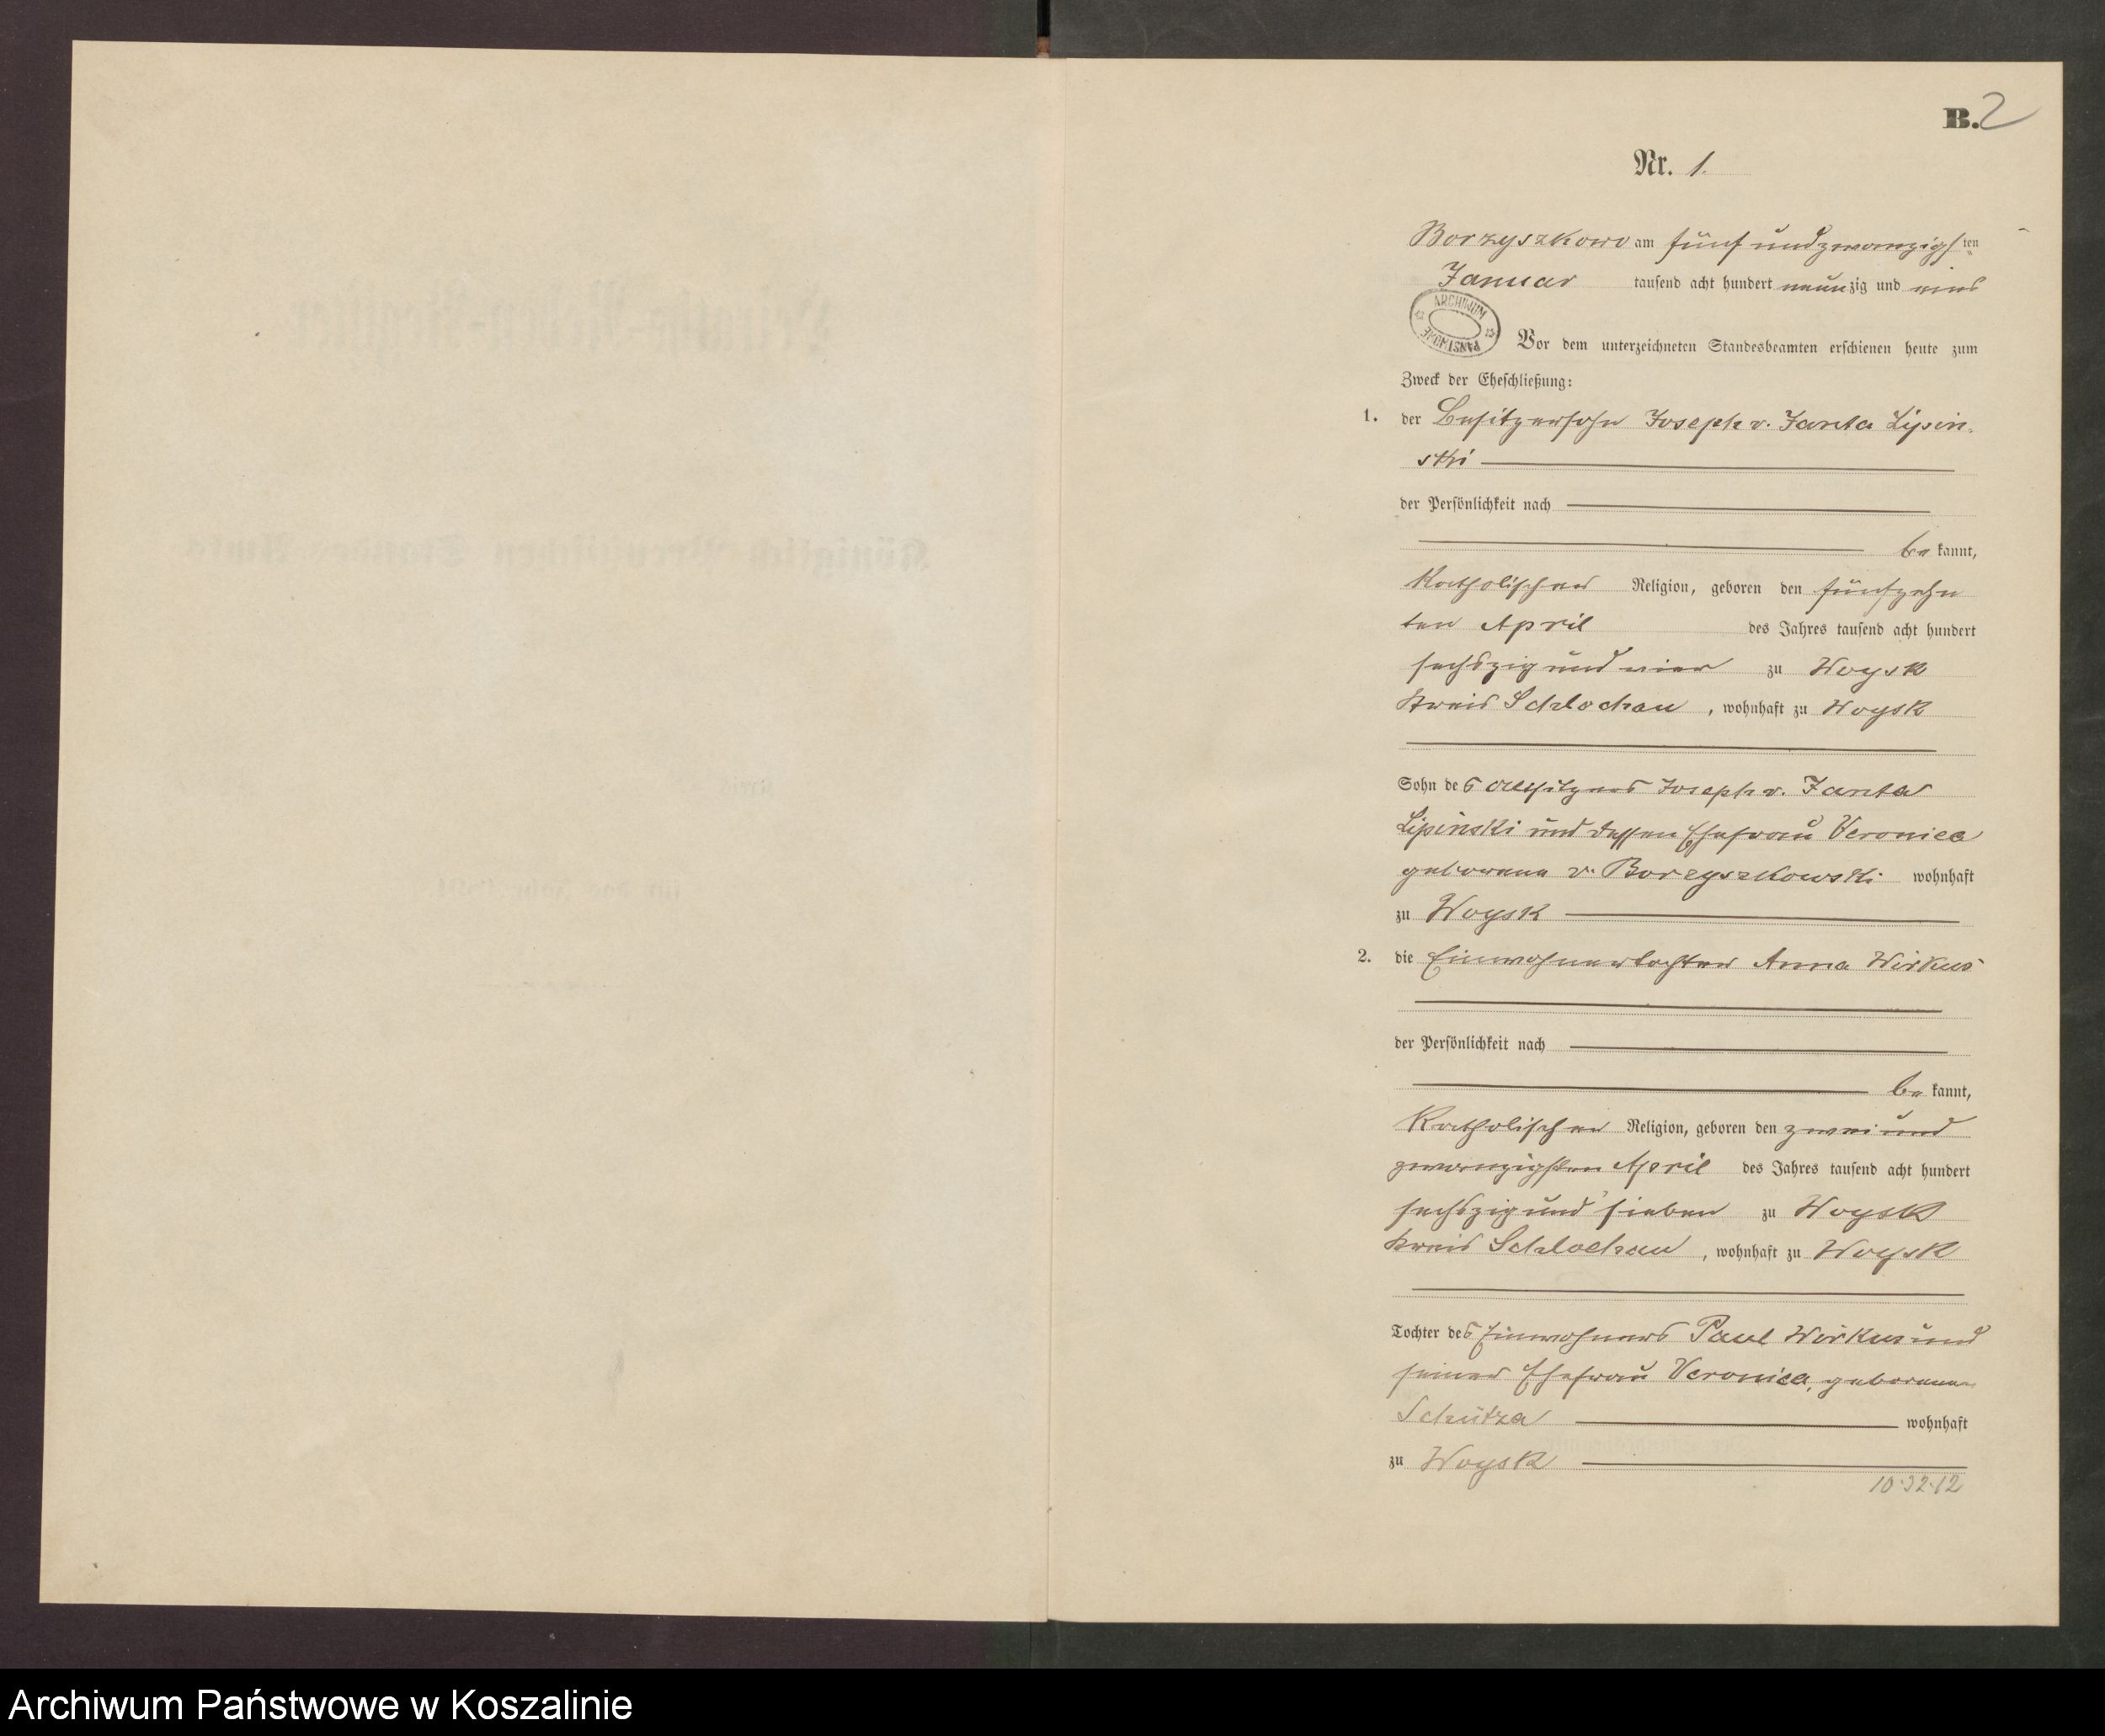 B. 2
Nr. 1.
Borzyszkowo am fünf und zwanzigsten
Januar tausend acht hundert neunzig und eins
ARCHIWUM PAŃSTWOWE
Vor dem unterzeichneten Standesbeamten erschienen heute zum
Zweck der Eheschließung:
1. der Besitzersohn Joseph v. Janta Lipin-
ski
der Persönlichkeit nach
be kannt,
Katholischer Religion, geboren den fünfzehn
ten April des Jahres tausend acht hundert
sechszig und vier zu Woysk
Kreis Schlochau, wohnhaft zu Woysk
Sohn des Altsitzers Joseph v. Janta
Lipinski und dessen Ehefrau Veronica
geborene v. Borzyszkowski wohnhaft
zu Woysk
2. die Einwohnertochter Anna Wirkus
der Persönlichkeit nach
be kannt,
Katholischer Religion, geboren den zwei und
zwanzigsten April des Jahres tausend acht hundert
sechszig und sieben zu Woysk
Kreis Schlochau, wohnhaft zu Woysk
Tochter des Einwohners Paul Wirkus und
seiner Ehefrau Veronica, geborene
Schütza wohnhaft
zu Woysk
10.32.12
Archiwum Państwowe w Koszalinie